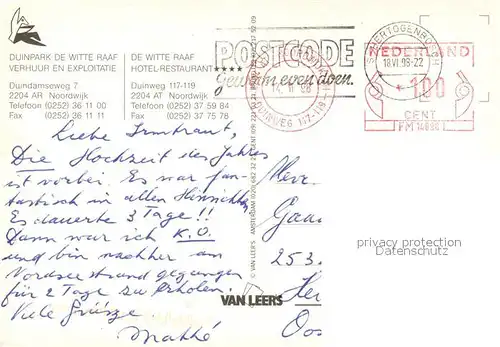 DUINPARK DE WITTE RAAF
VERHUUR EN EXPLOITATIE
Duindamseweg 7
2204 AR Noordwijk
Telefoon (0252) 36 11 00
Fax (0252) 36 11 11
DE WITTE RAAF
HOTEL-RESTAURANT★★★★
Duinweg 117-119
2204 AT Noordwijk
Telefoon (0252) 37 59 84
Fax (0252) 37 75 78
POSTCODE
gewoon even doen.
DUINWEG 117-119
'S-HERTOGENBOSCH
18 VI 98-22
NEDERLAND
100
CENT
Liebe Irmtraut,
Die Hochzeit des Jahres
ist vorbei. Es war fan-
tastisch in allen Hinsichten
Es dauerte 3 Tage!!
Dann war ich K.O.
und bin nachher am
Nordseestrand gegangen
für 2 Tage zu erholen.
Viele Grüsze.
Mev.
Gaa
253.
Oos
© VAN LEER'S AMSTERDAM
VAN LEER'S
privacy protection
Datenschutz